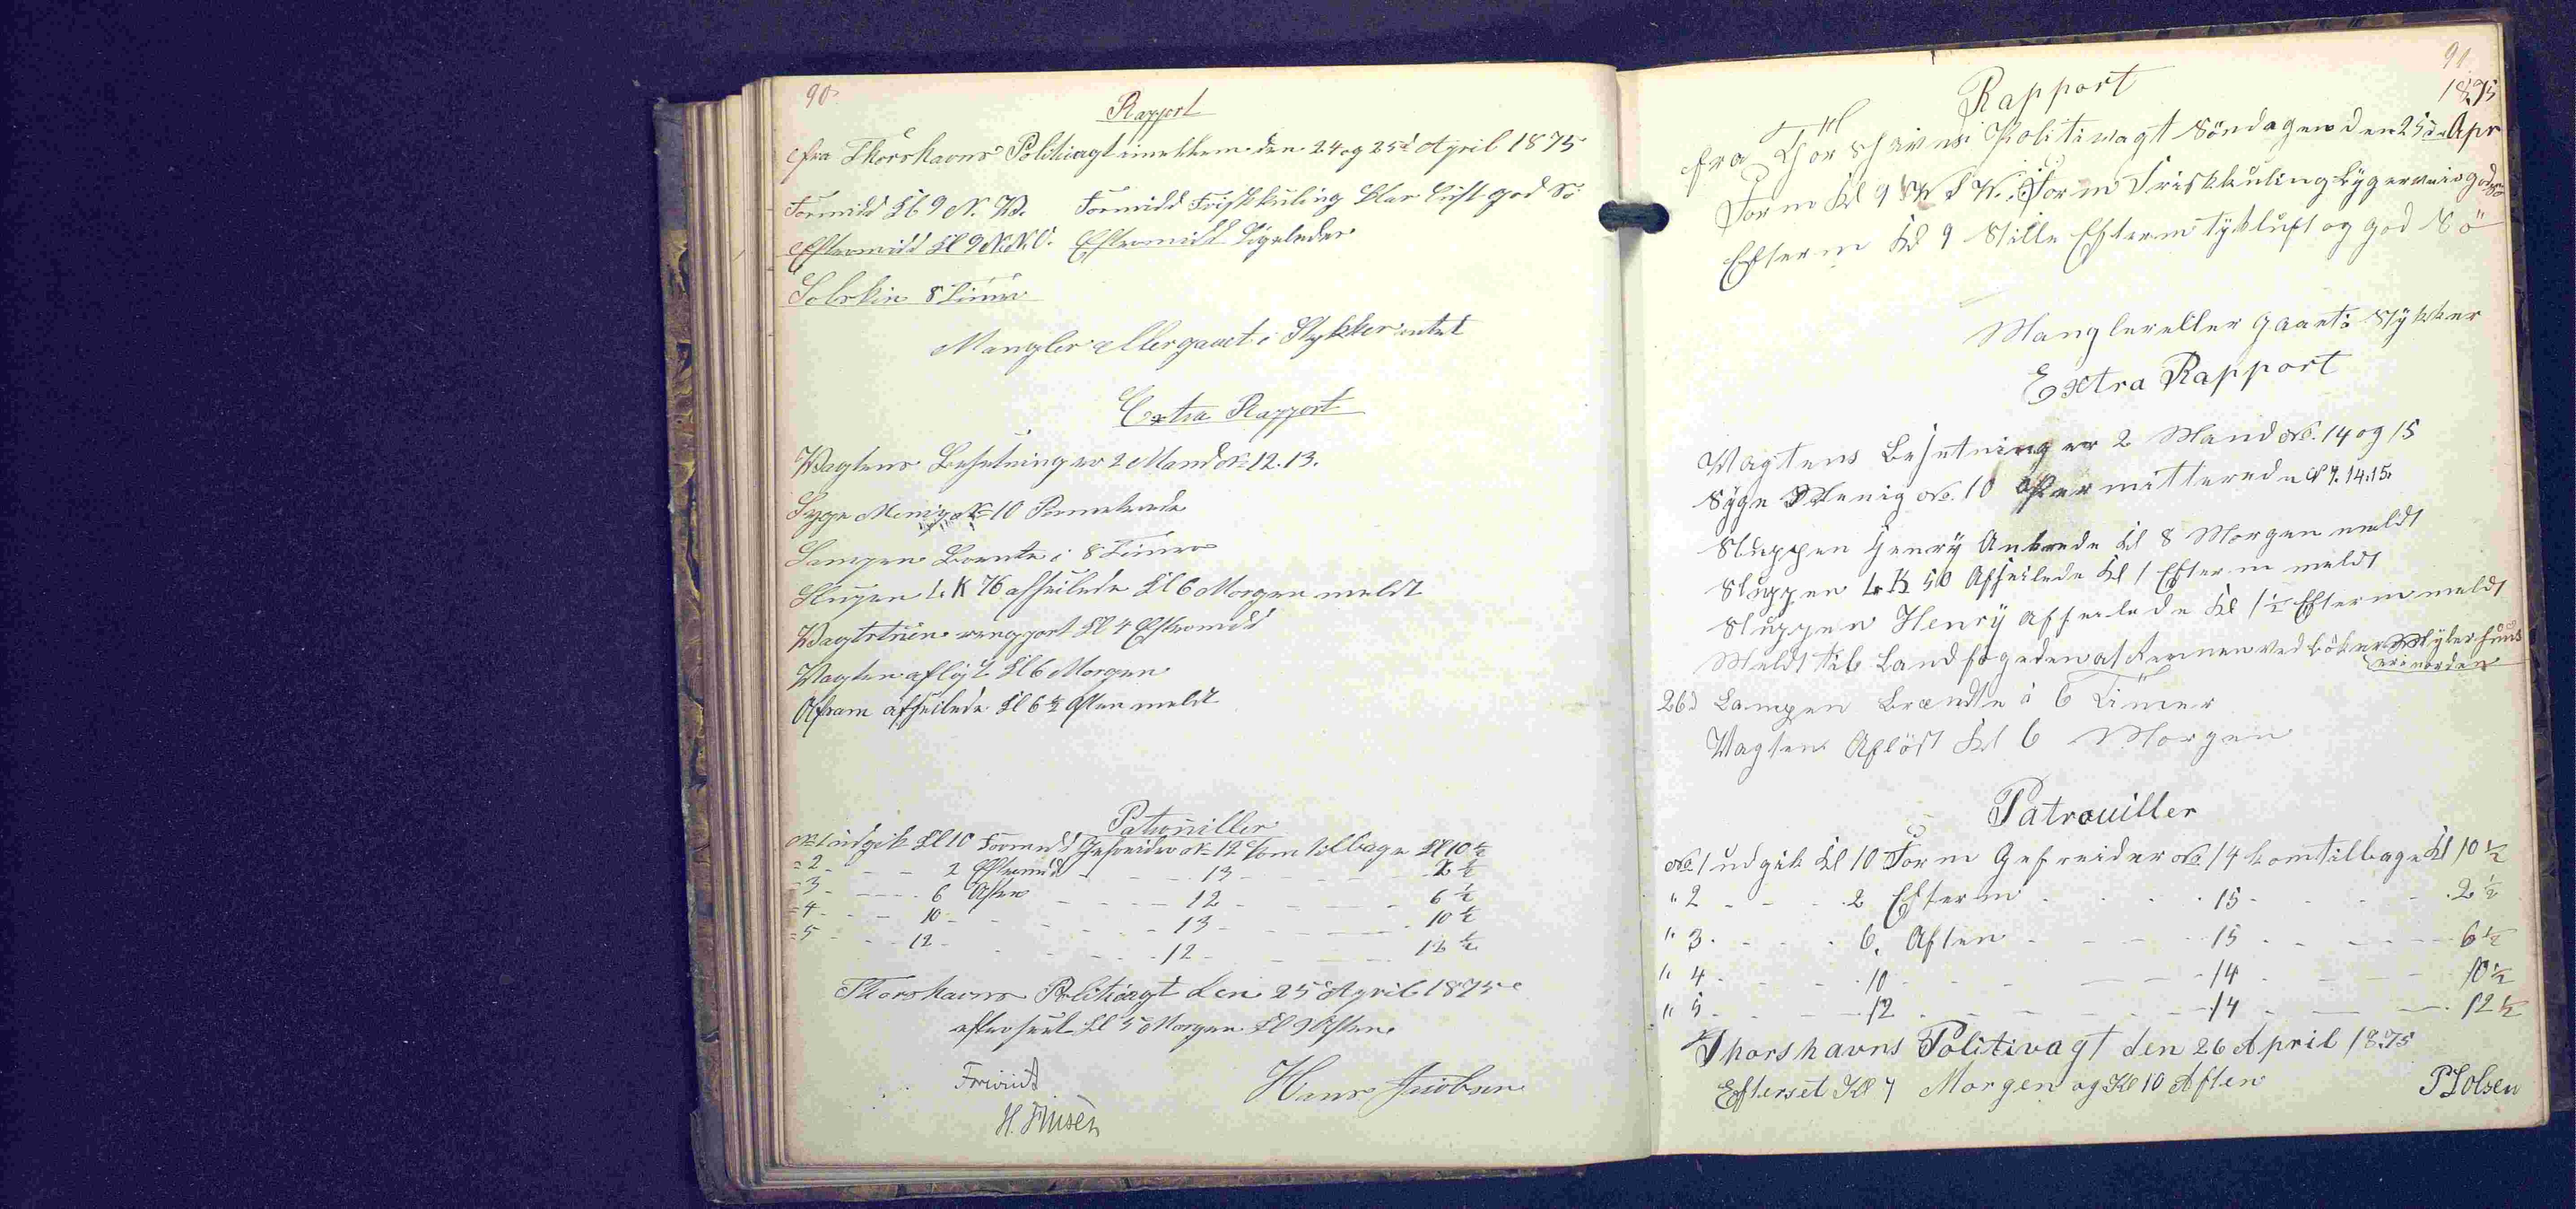 90
Rapport
fra Thorshavns Politivagt imellem den 24 og 25d April 1875
Formidd Kl 9 N. W. Formidd Friskkuling klar luft god Sö
Eftermidd Kl 9 N.N.O. Eftermidd ligeledes
Solskin 8 Timer
Mangler eller gaaet i Stykker intet
Extra Rapport
Wagtens Besetning er 2 Mand No 12. 13.
Syge Menig No 10
Lampen Brente i 8 Timer
Slupen L. K 76 afseilede Kl 6 Morgen meldt
Wagtstuen rengjort Kl 4 Eftermidd
Vagten aflöst Kl 6 Morgen
afseilede Kl 6½ Aften meldt
Patrouiller
No 1 udgik Kl 10 Formidd Gefreider No 12 kom tilbage Kl 10½
= 2 - - - 2 Eftermidd - - - 13 - - - 2½
= 3 - - - 6 Aften - - - 12 - - - 6½
= 4 - - - 10 - - - 13 - - - 10½
= 5 - - - 12 - - - 12 - - - 12½
Thorshavns Politivagt den 25 April 1875
efterseet Kl 5 Morgen Kl 9 Aften.
Hans Jacobsen
H.
91
1875
Rapport
fra Thorshavns Politivagt Söndagen den 25de Apr
Form Kl 9 Form Friskkuling Lygerveir god
Efterm Kl 9 Stille Efterm tykluft og god Sö
Mangler eller gaaet i Stykker
Extra Rapport
Vagtens Besetning er 2 Mand No. 14 og 15
Syge Menig No. 10 permitterede 14.15.
Sluppen Henry Ankrede Kl 8 Morgen meldt
Sluppen L K 50 Afseilede Kl 1 Efterm meldt
Sluppen Henry afseilede Kl 1½ Efterm meldt
Meldt til Landfogeden at Rennen ved Huus
er i uorden
26d Lampen Brændte i 6 Timer
Vagten Aflöst Kl 6 Morgen
Patrouiller
No. 1 udgik Kl 10 Form Gefreider No 14 kom tilbage Kl 10½
" 2 - - - 2 Efterm - - - 15 - - - 2½
" 3 - - - 6. Aften - - - 15 - - - 6½
" 4 - - - 10 - - - 14 - - - 10½
" 5 - - - 12 - - - 14 - - - 12½
Thorshavns Politivagt den 26 April 1875
Efterset Kl 7 Morgen og Kl 10 Aften
Olsen